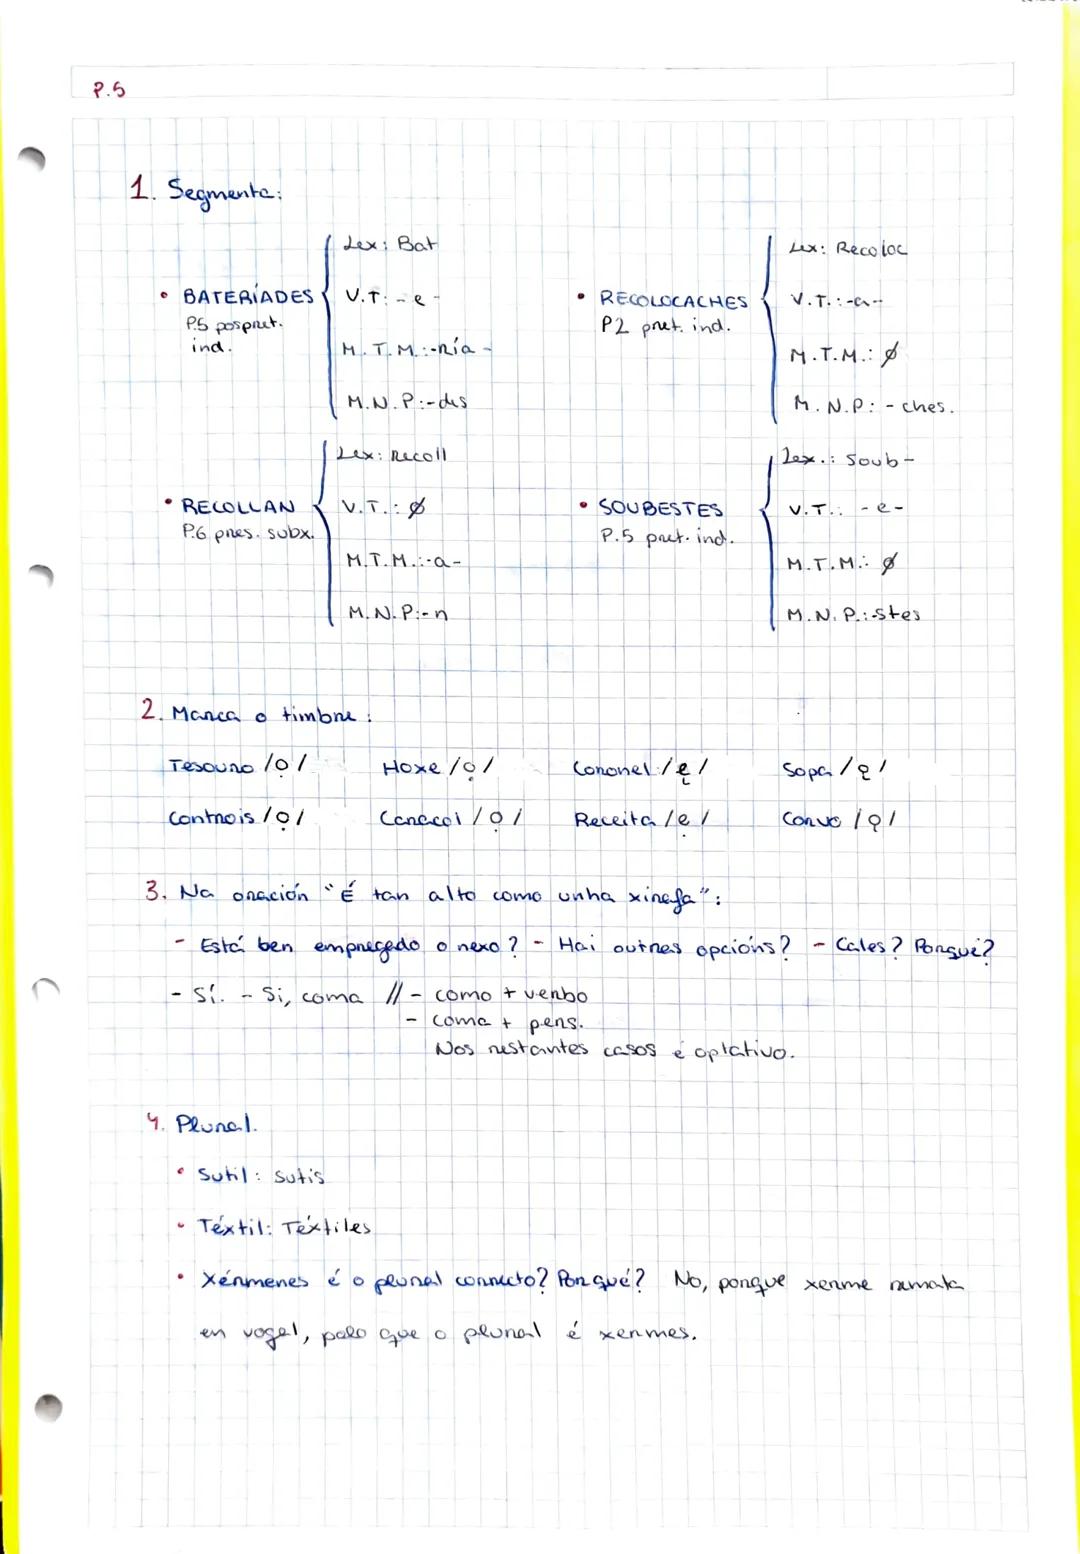 P.5
1. Segmenta:
• BATERÍADES
P.5 pospret.
ind.
Lex: Bat
V.T: -e-
M.T.M.:-ría-
M.N.P:-des
• RECOLOCACHES
P2 pret. ind.
Lex: Recoloc
V.T.:-a-
M.T.M.: ø
M.N.P: -ches.
• RECOLLAN
P.6 pres. subx.
Lex: recoll
V.T.: ø
M.T.M.:-a-
M.N.P:-n
• SOUBESTES
P.5 pret. ind.
Lex.: Soub-
V.T.: -e-
M.T.M.: ø
M.N.P.:-stes
2. Marca o timbre:
Tesouro /ọ/ Hoxe /ọ/ Coronel /ę/ Sopa /ǫ/
Controis /ǫ/ Caracol /ọ/ Receita /ẹ/ Corvo /ǫ/
3. Na oración "É tan alto como unha xirafa":
- Está ben empregado o nexo? - Hai outras opcións? - Cales? Porqué?
- Sí. - Si, coma // - como + verbo
- coma + pers.
Nos restantes casos é optativo.
4. Plural.
• Sutil: sutís
• Téxtil: Téxtiles
• Xérmenes é o plural correcto? Por qué? No, porque xerme remata
en vogal, polo que o plural é xermes.